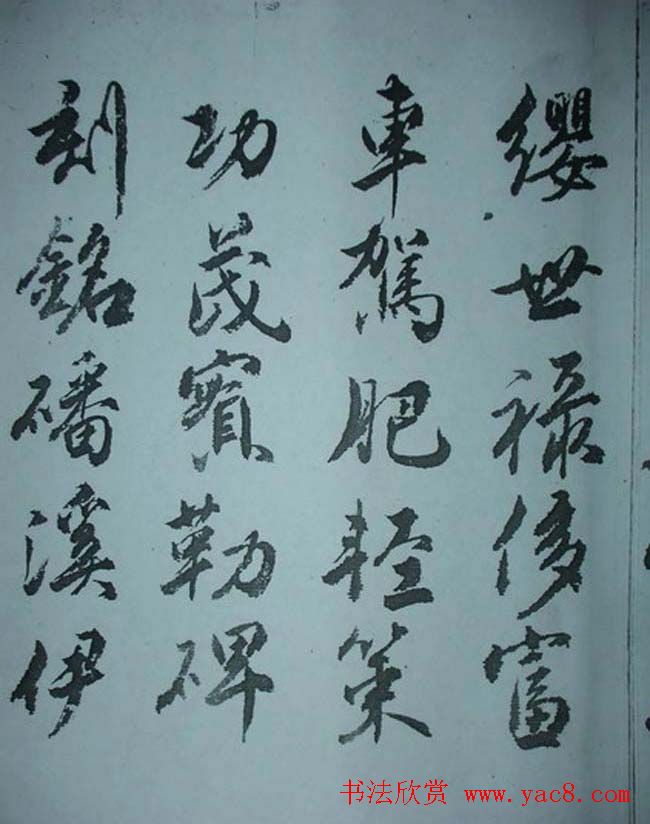 纓世禄侈富
車駕肥輕策
功茂實勒碑
刻銘磻溪伊
书法欣赏 www.yac8.com